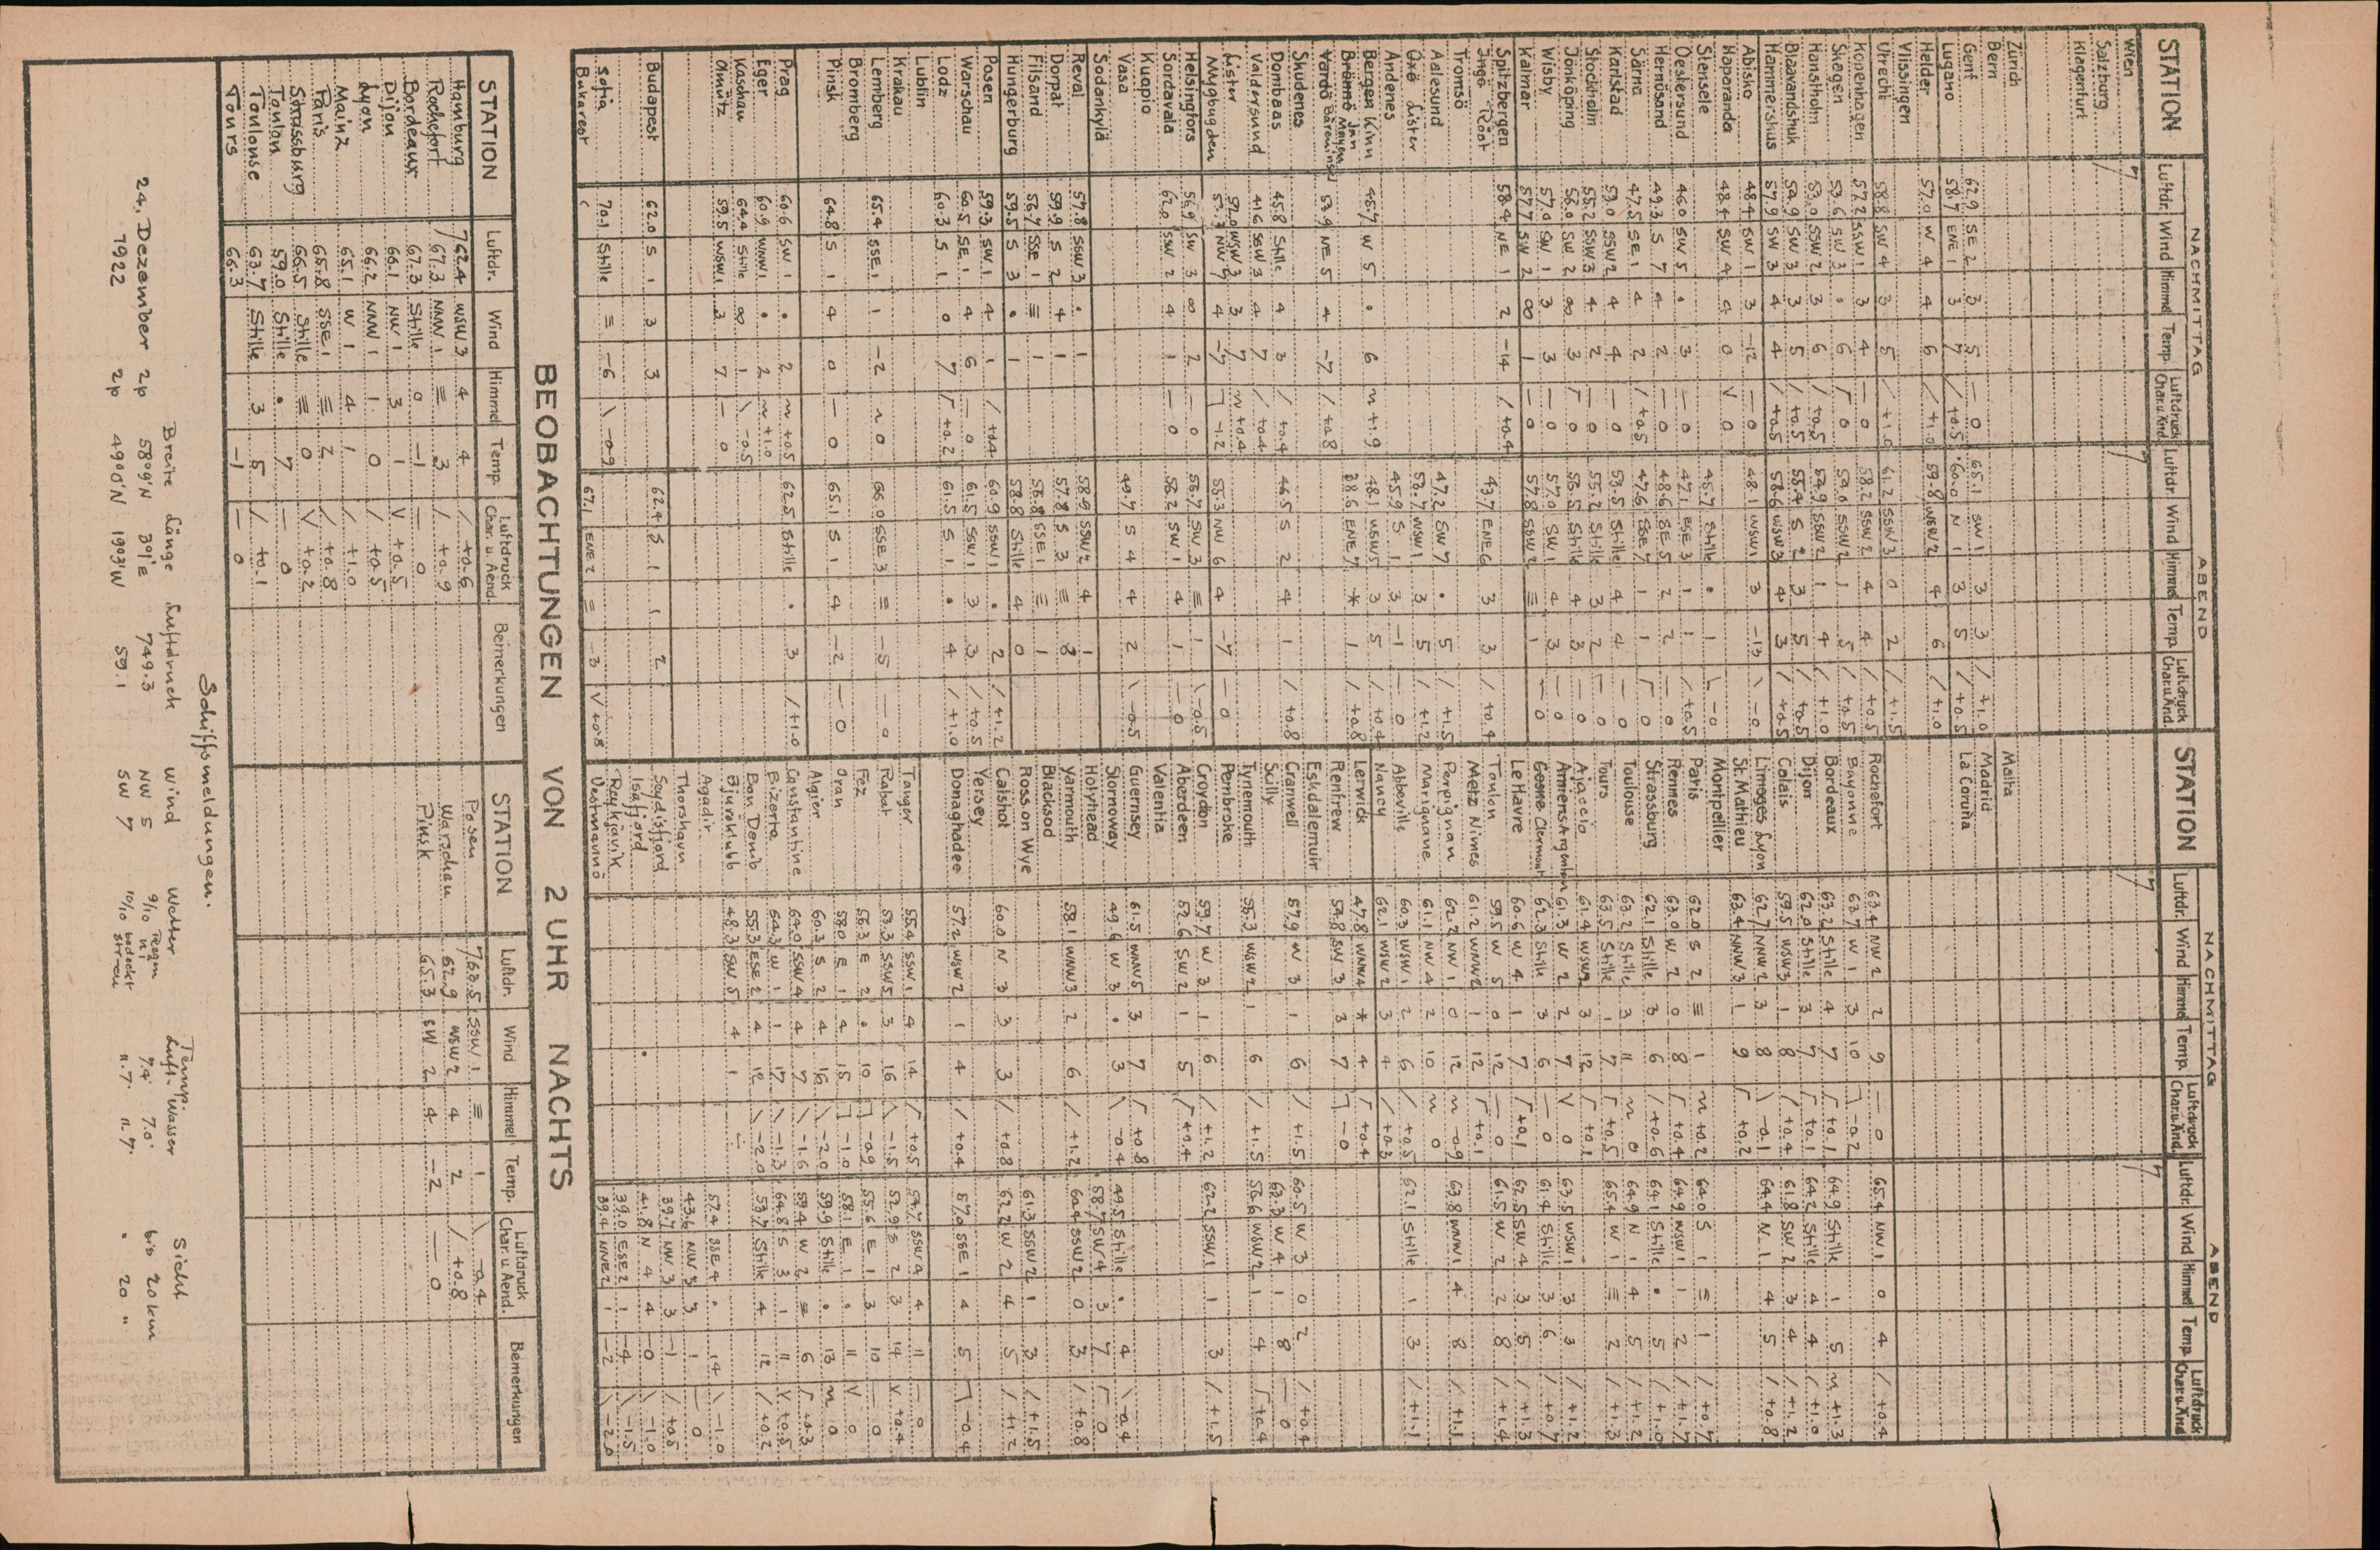 STATION NACHMITTAG ABEND STATION NACHMITTAG ABEND
Luftdr. Wind Himmel Temp. Luftdruck Char.u.Änd. Luftdr. Wind Himmel Temp. Luftdruck Char.u.Änd. Luftdr. Wind Himmel Temp. Luftdruck Char.u.Änd. Luftdr. Wind Himmel Temp. Luftdruck Char.u.Änd.
Wien 7 7 7 7
Salzburg
Klagenfurt
Zürich
Bern Malta
Genf 62.9 SE 2 3 5 — 0 65.1 SW 1 3 3 / +1.0 Madrid
Lugano 58.7 ENE 1 3 7 / +0.5 60.0 N 1 3 5 / +0.5 La Coruña
Helder 57.0 W 4 4 6 / +1.0 59.8 WSW 2 4 6 / +1.0
Vlissingen
Utrecht 58.8 SW 4 3 5 / +1.0 61.2 SSW 3 0 2 / +1.5 Rochefort 63.4 NW 2 2 9 — 0 65.4 NW 1 0 4 / +0.4
Kopenhagen 57.2 SSW 1 3 4 — 0 58.2 SSW 2 4 4 / +0.5 Bayonne 63.7 W 1 3 10 ⅂ -0.2
Skagen 53.6 SW 3 • 6 Γ 0 54.0 SSW 2 1 5 / +0.5 Bordeaux 63.2 Stille 4 7 Γ +0.1 64.9 Stille 1 5 n +1.3
Hanstholm 53.0 SSW 2 3 6 / +0.5 54.9 SSW 2 1 4 / +1.0 Dijon 62.0 Stille 3 7 Γ +0.1 64.2 Stille 4 4 / +1.0
Blaavandshuk 54.9 SW 3 3 5 / +0.5 55.4 S 2 3 5 / +0.5 Calais 59.5 WSW 3 1 8 / +0.4 61.8 SW 2 3 4 / +1.2
Hammershus 57.9 SW 3 4 4 / +0.5 58.6 WSW 3 4 3 / +0.5 Limoges Lyon 62.7 NNW 2 3 8 \ -0.1 64.4 N 1 4 5 / +0.8
Abisko 48.4 SW 1 3 -12 — 0 48.1 WSW 1 3 -13 \ -0 St. Mathieu 63.4 NNW 3 1 9 Γ +0.2
Haparanda 48.4 SW 4 4 0 V 0 Montpellier
Stensele 45.7 Stille • 1 \ -0 Paris 62.0 S 2 ≡ 1 n +0.2 64.0 S 1 = 1 / +0.7
Oeskersund 46.0 SW 5 • 3 — 0 47.1 ESE 3 1 1 / +0.5 Rennes 63.0 W 2 0 8 Γ +0.4 64.9 WSW 1 1 2 / +1.7
Hernösand 49.3 S 7 4 2 — 0 48.6 SE 5 2 2 — 0 Strassburg 62.1 Stille 3 6 / +0.6 64.1 Stille • 5 / +1.0
Särna 47.5 SE 1 4 2 / +0.5 47.6 SSE 7 1 1 Γ 0 Toulouse 63.2 Stille 3 11 n 0 64.9 N 1 4 5 / +1.2
Karlstad 53.0 SSW 2 4 4 — 0 53.5 Stille 4 4 — 0 Tours 63.5 Stille 1 7 Γ +0.5 65.4 W 1 = 2 / +1.3
Stockholm 55.2 SSW 3 4 2 — 0 55.2 Stille 3 2 Γ 0 Ajaccio 61.4 WSW 2 3 12 Γ +0.1
Jönköping 56.0 SW 2 ∞ 3 Γ 0 56.5 Stille 4 3 — 0 Amiens Argenton 61.3 W 2 2 7 V 0 63.5 WSW 1 3 3 / +1.2
Wisby 57.0 SW 1 3 3 — 0 57.0 SW 1 4 3 — 0 Clermont 62.3 Stille 3 6 — 0 61.4 Stille 3 6 / +0.7
Kalmar 57.7 SW 2 ∞ 1 — 0 57.8 SSW 2 ≡ 1 — 0 Le Havre 60.6 W 4 1 7 Γ +0.1 62.5 SW 4 3 5 / +1.3
Spitzbergen 58.4 NE 1 2 -14 / +0.4 Toulon 59.5 W 5 0 12 — 0 61.5 W 2 2 8 / +1.4
Ingö Röst 43.7 ENE 6 3 3 / +0.4 Metz Nimes 61.2 WNW 2 1 12 Γ +0.1
Tromsö Perpignan 62.2 NW 1 0 12 n -0.9 63.8 WNW 1 4 8 / +1.1
Aalesund 47.2 SW 7 • 5 / +1.5 Marignane 61.1 NW 4 2 10 n 0
Oxö Lister 53.7 WSW 1 3 5 / +1.2 Abbeville 60.3 WSW 1 2 6 / +0.5 62.1 Stille 1 3 / +1.1
Andenes 45.9 S 1 3 -1 — 0 Nancy 62.1 WSW 2 3 4 / +0.3
Bergen Kinn 45.7 W 5 • 6 n +.9 48.1 WSW 5 3 5 / +0.4 Lerwick 47.8 WNW 4 * 4 Γ +0.4
Brönnö Jan Mayen 38.6 ENE 7 * 1 / +0.8 Renfrew 54.8 SW 3 3 7 ⅂ -0
Vardö Bäreninsel 53.9 NE 5 4 -7 / +0.8 Eskdalemuir
Skudenes Cranwell 57.9 W 3 1 6 / +1.5 60.5 W 3 0 2 / +0.4
Dombaas 45.8 Stille 4 3 / +0.4 46.5 S 2 4 1 / +0.8 Scilly 63.3 W 4 1 8 — 0
Valdersund 41.6 SSW 3 4 7 / +0.4 Tynemouth 55.3 WSW 2 1 6 / +1.5 56.6 WSW 2 1 4 Γ +0.4
Lister 57.0 WSW 3 3 7 n +0.4 Pembroke
NW 7 4 -7 ⅂ -1.2 55.3 NW 6 4 -7 — 0 Croydon 59.7 W 3 1 6 / +1.2 62.2 SSW 1 1 3 / +1.5
Helsingfors 56.9 SW 3 ∞ 2 — 0 56.7 SW 3 ≡ 1 \ -0.5 Aberdeen 52.6 SW 2 1 5 Γ +0.4
Sordavala 62.0 SSW 2 4 1 — 0 58.2 SW 1 4 1 — 0 Valentia
Kuopio Guernsey 61.5 WNW 5 3 7 Γ +0.8
Vasa 49.7 S 4 4 2 \ -0.5 Stornoway 49.6 W 3 • 3 \ -0.4 49.5 Stille • 4 \ -0.4
Sodankylä Holyhead 58.7 SW 4 3 7 Γ 0
Reval 57.8 SSW 3 • 1 58.9 SSW 2 4 1 Yarmouth 58.1 WNW 3 2 6 / +1.2 60.4 SSW 2 0 3 / +0.8
Dorpat 59.9 S 2 4 1 57.8 S 3 ≡ 8 Blacksod
Filsand 56.7 SSE 1 ≡ 1 56.8 SSE 1 ≡ 1 Ross on Wye 61.3 SSW 2 1 3 / +1.5
Hungerburg 59.5 S 3 • 1 58.8 Stille 4 0 Calshot 60.0 N 3 3 3 / +0.8 63.2 W 2 4 5 / +1.2
Posen 59.3 SW 1 4 1 / +0.4 60.9 SSW 1 • 2 / +1.2 Yersey
Warschau 60.5 SE 1 4 6 — 0 61.5 SSW 1 3 3 / +0.5 Donaghadee 57.2 WSW 2 1 4 / +0.4 57.0 SSE 1 4 5 ⅂ -0.4
Lodz 60.3 S 1 0 7 Γ +0.2 61.5 S 1 • 4 / +1.0
Lublin
Krakau Tanger 55.4 SSW 1 4 14 Γ +0.5 54.7 SSW 4 4 11 — 0
Lemberg 65.4 SSE 1 1 -2 n 0 66.0 SSE 3 = -5 — 0 Rabat 53.3 SSW 5 3 16 \ -1.5 52.9 S 2 3 14 V +0.4
Bromberg Fez 56.3 E 2 • 10 ⅂ -0.9 55.6 E 1 3 10 — 0
Pinsk 64.8 S 1 4 0 — 0 65.1 S 1 4 -2 — 0 Oran 58.0 E 1 4 15 ⅂ -1.0 58.1 E 1 • 11 V 0
Algier 60.3 S 2 4 16 \ -2.0 59.9 Stille • 13 n 0
Prag 60.6 SW 1 • 2 n +0.5 62.5 Stille • 3 / +1.0 Constantine 64.0 SSW 4 4 7 \ -1.6 59.4 W 2 ≡ 6 Γ +0.3
Eger 60.9 WNW 1 • 2 n +1.0 Bizerta 64.3 W 1 1 17 \ -1.3 64.8 S 3 1 11 V +0.5
Kaschau 64.4 Stille ∞ 1 \ -0.5 Bon Donib 55.3 ESE 2 4 12 \ -2.0 53.7 Stille 4 12 / +0.2
Olmütz 59.5 WSW 1 3 7 — 0 Bjuröklubb 48.3 SW 5 4 1 —
Agadir 57.4 SSE 4 • 14 \ -1.0
Thorshavn 43.6 NW 3 3 1 — 0
Budapest 62.0 S 1 3 3 62.4 S 1 1 2 Seydisfjord 39.7 NW 3 3 -1 / +0.5
Isafjord 41.8 N 4 4 -0 \ -1.0
Sofia 70.1 Stille = -6 \ -0.9 Reykjavik 39.0 ESE 2 1 -4 \ -1.5
Bukarest 67.1 ENE 2 = -3 V +0.8 Vestmanno 39.4 NNE 2 1 -2 \ -2.0
BEOBACHTUNGEN VON 2 UHR NACHTS
STATION Luftdr. Wind Himmel Temp. Luftdruck Char. u. Aend. Bemerkungen STATION Luftdr. Wind Himmel Temp. Luftdruck Char. u. Aend. Bemerkungen
Hamburg 762.4 WSW 3 4 4 / +0.6 Posen 763.5 SSW 1 = 1 \ -0.4
Rochefort 67.3 NNW 1 = 3 / +0.9 Warschau 62.9 WSW 2 4 2 / +0.8
Bordeaux 67.3 Stille 0 -1 — 0 Pinsk 65.3 SW 2 4 -2 — 0
Dijon 66.1 NW 1 3 1 V +0.5
Lyon 66.2 NNW 1 1 0 / +0.5
Mainz 65.1 W 1 4 1 / +1.0
Paris 65.8 SSE 1 ≡ 2 / +0.8
Strassburg 66.5 Stille ≡ 0 V +0.2
Toulon 59.0 Stille • 7 — 0
Toulouse 63.7 Stille 3 5 / +0.1
Tours 66.3 -1 — 0
Schiffsmeldungen.
Breite Länge Luftdruck Wind Wetter Temp. Luft. Wasser Sicht
24. Dezember 2p 5809'N 301'E 749.3 NW 5 9/10 Regen 7.4° 7.0° bis 20 km
1922 2p 4900'N 1903'W 59.1 SW 7 10/10 bedeckt 11.7. 11.7. " 20 "